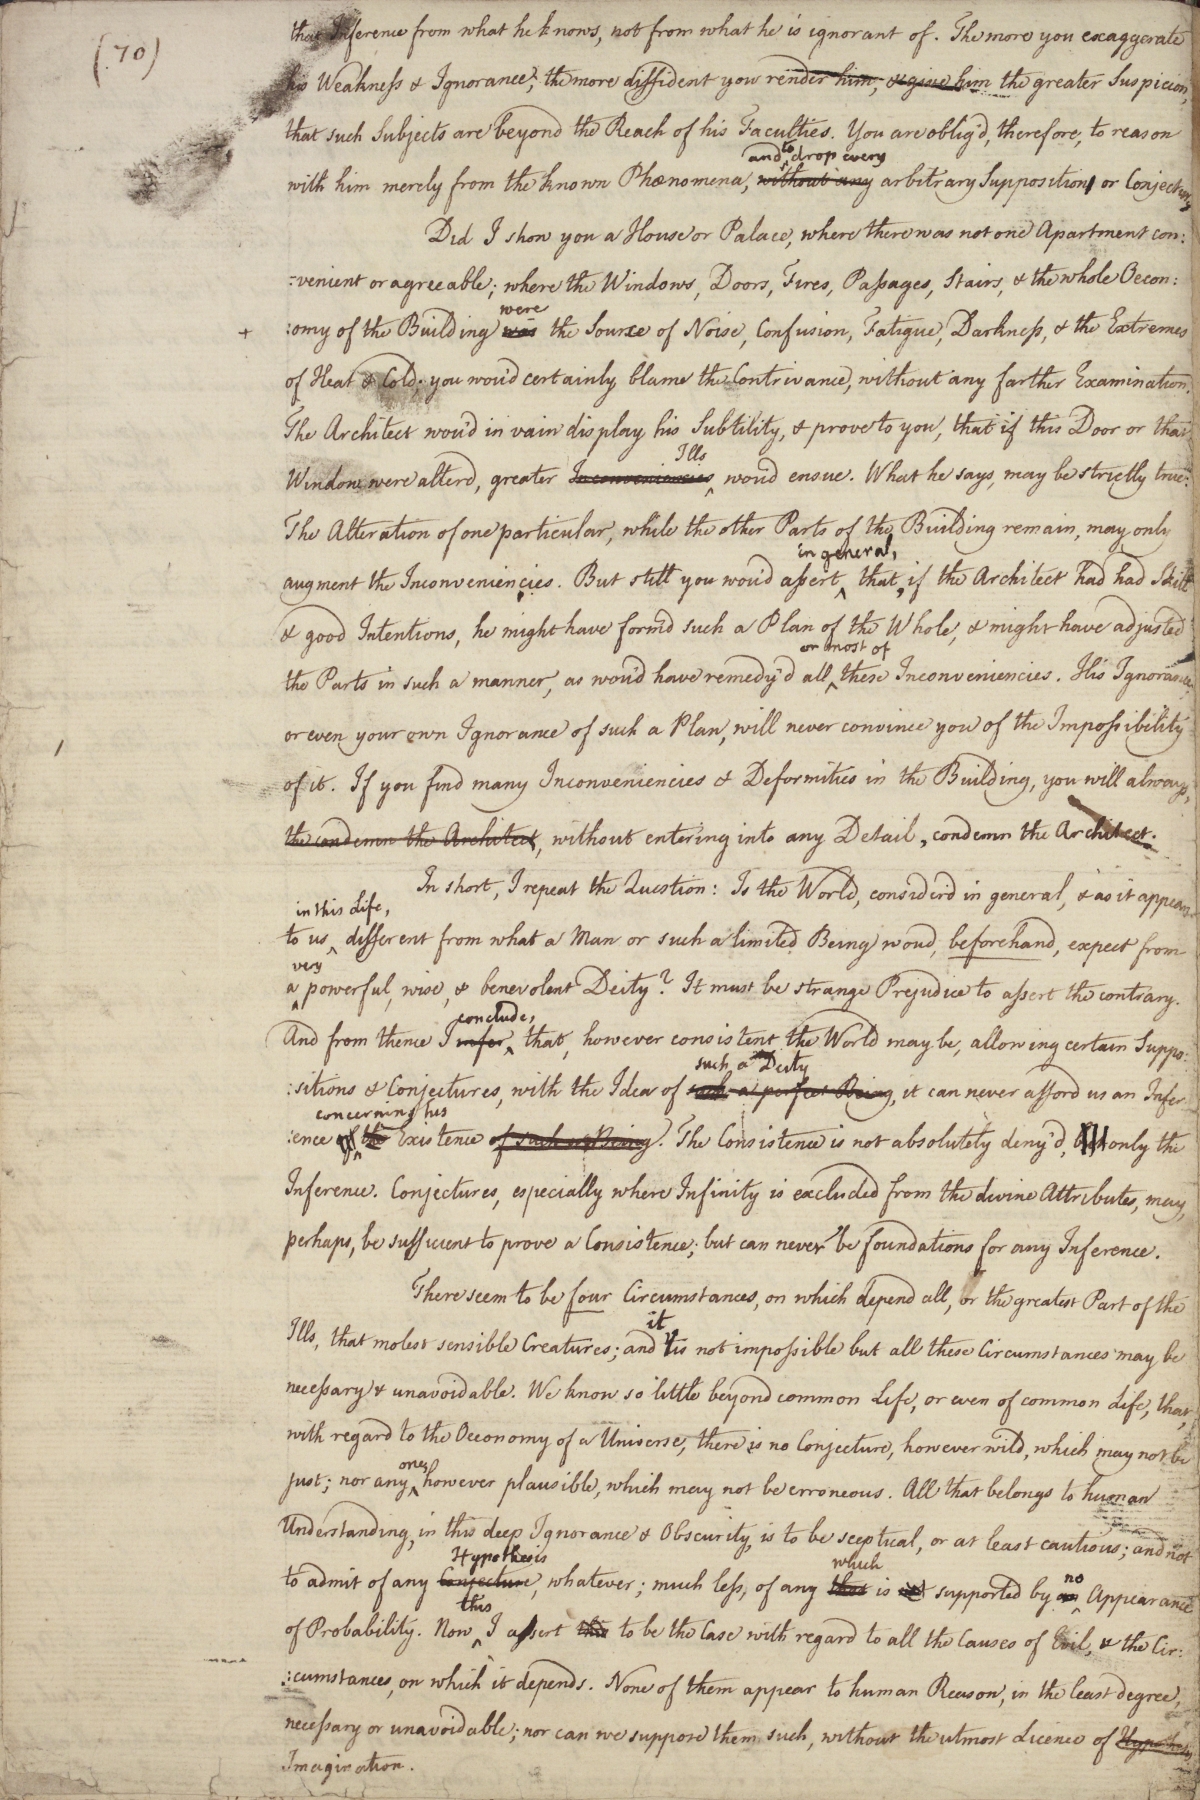 (70)
that Inference from what he knows, not from what he is ignorant of. The more you exaggerate
his Weakness & Ignorance; the more diffident you render him, & give him the greater Suspicion,
that such Subjects are beyond the Reach of his Faculties. You are oblig'd, therefore, to reason
and to drop every
with him merely from the known Phænomena, without any arbitrary Supposition or Conjecture
Did I show you a House or Palace, where there was not one Apartment con:
:venient or agreeable; where the Windows, Doors, Fires, Passages, Stairs, & the whole Oecon:
were
+ :omy of the Building was the Source of Noise, Confusion, Fatigue, Darkness, & the Extremes
of Heat & Cold; you wou'd certainly blame the Contrivance, without any farther Examination.
The Architect wou'd in vain display his Subtility, & prove to you, that if this Door or that
Ills
Window were alterd, greater Inconveniencies wou'd ensue. What he says, may be strictly true:
The Alteration of one particular, while the other Parts of the Building remain, may only
in general,
augment the Inconveniencies. But still you wou'd assert that, if the Architect had had Skill
& good Intentions, he might have form'd such a Plan of the Whole, & might have adjusted
or most of
the Parts in such a manner, as wou'd have remedy'd all these Inconveniencies. His Ignorance,
or even your own Ignorance of such a Plan, will never convince you of the Impossibility
of it. If you find many Inconveniencies & Deformities in the Building, you will always,
the condemn the Architect, without entering into any Detail, condemn the Architect.
In short, I repeat the Question: Is the World, consider'd in general, & as it appears
in this Life,
to us different from what a Man or such a limited Being wou'd, beforehand, expect from
very
a powerful, wise, & benevolent Deity? It must be strange Prejudice to assert the contrary.
conclude,
And from thence I infer, that, however consistent the World may be, allowing certain Suppo:
such a Deity
:sitions & Conjectures, with the Idea of such a perfect Being, it can never afford us an Infer
concerning his
:ence of the Existence of such a Being. The Consistence is not absolutely deny'd, but only the
Inference. Conjectures, especially where Infinity is excluded from the divine Attributes, may,
perhaps, be sufficient to prove a Consistence; but can never be foundations for any Inference.
There seem to be four Circumstances, on which depend all, or the greatest Part of the
it
Ills, that molest sensible Creatures; and 'tis not impossible but all these Circumstances may be
necessary & unavoidable. We know so little beyond common Life, or even of common Life, that,
with regard to the Oeconomy of a Universe, there is no Conjecture, however wild, which may not be
one,
just; nor any however plausible, which may not be erroneous. All that belongs to human
Understanding, in this deep Ignorance & Obscurity, is to be sceptical, or at least cautious; and not
Hypothesis which no
to admit of any Conjecture, whatever; much less, of any that is not supported by an Appearance
this
of Probability. Now I assert this to be the Case with regard to all the Causes of Evil, & the Cir:
:cumstances, on which it depends. None of them appear to human Reason, in the least degree,
necessary or unavoidable; nor can we suppose them such, without the utmost Licence of Hypothesis
Imagination.